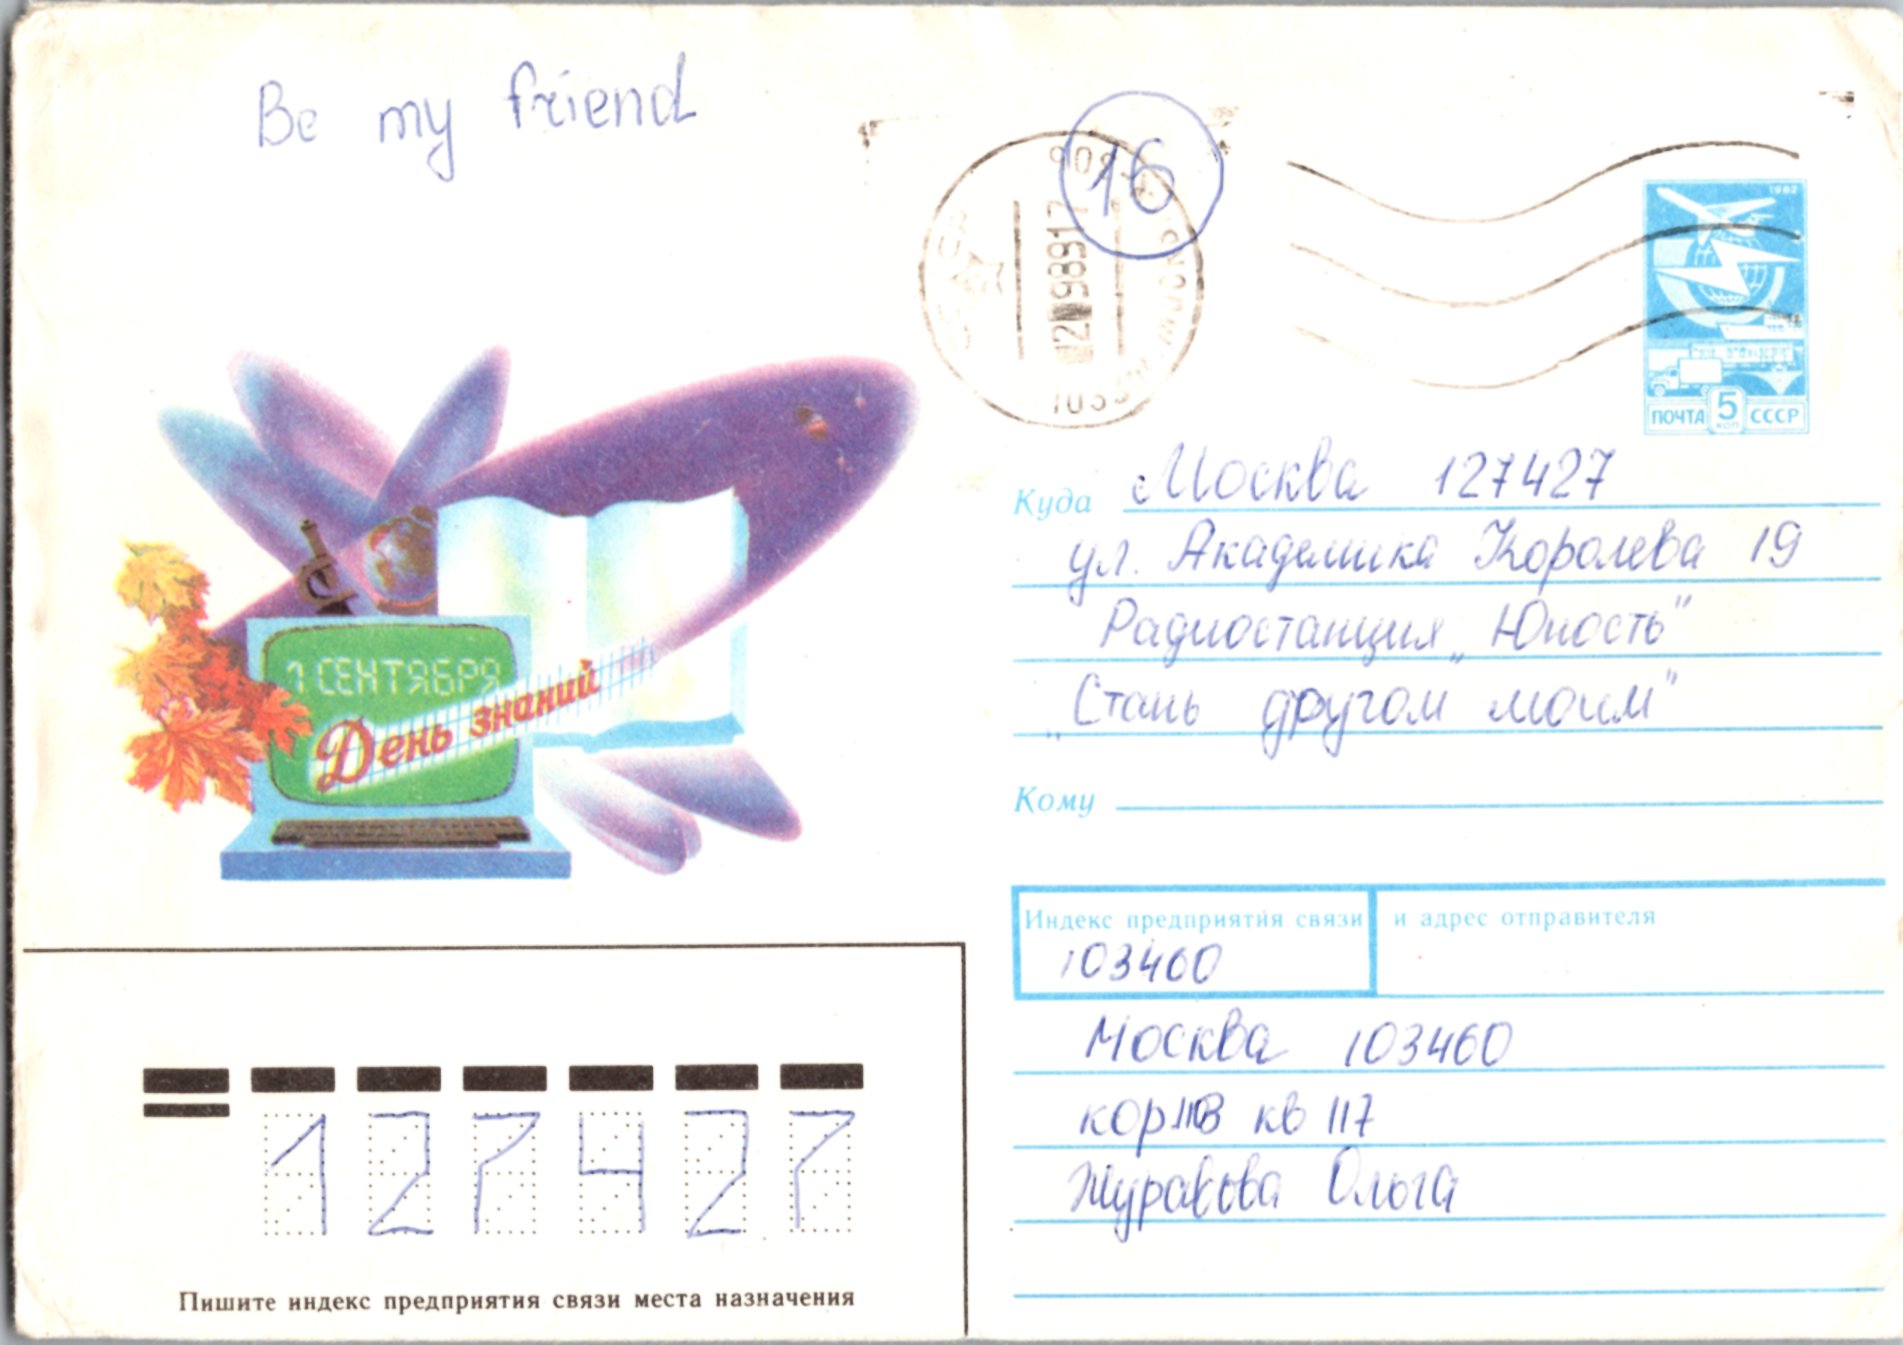 Be my friend
16
1982
ПОЧТА 5 СССР
КОП
Куда Москва 127427
ул. Академика Королева 19
Радиостанция „Юность"
„Стань другом моим"
Кому
1 СЕНТЯБРЯ
День знаний
Индекс предприятия связи и адрес отправителя
103460
Москва 103460
кв 117
Ольга
127427
Пишите индекс предприятия связи места назначения